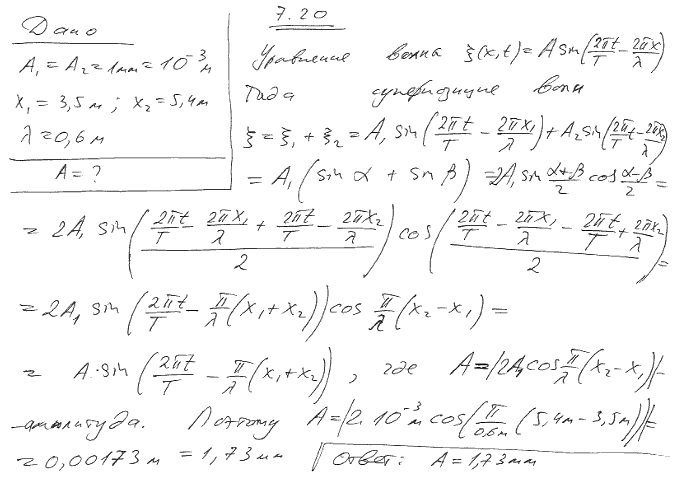 7.20
Дано
A₁ = A₂ = 1мм = 10⁻³ м
x₁ = 3,5 м ; x₂ = 5,4 м
λ = 0,6 м
A = ?
Уравнение волны ξ(x,t) = A sin(2πt/T - 2πx/λ)
Тогда суперпозиция волн
ξ = ξ₁ + ξ₂ = A₁ sin(2πt/T - 2πx₁/λ) + A₂ sin(2πt/T - 2πx₂/λ)
= A₁ (sin α + sin β) = 2A₁ sin (α+β)/2 cos (α-β)/2 =
= 2A₁ sin((2πt/T - 2πx₁/λ + 2πt/T - 2πx₂/λ)/2) cos((2πt/T - 2πx₁/λ - 2πt/T + 2πx₂/λ)/2) =
= 2A₁ sin(2πt/T - π/λ(x₁+x₂)) cos π/λ(x₂-x₁) =
= A·sin(2πt/T - π/λ(x₁+x₂)), где A = |2A₁ cos π/λ(x₂-x₁)| -
-амплитуда. Поэтому A = |2·10⁻³ м cos(π/0,6м (5,4м - 3,5м))| =
= 0,00173 м = 1,73 мм Ответ: A = 1,73 мм